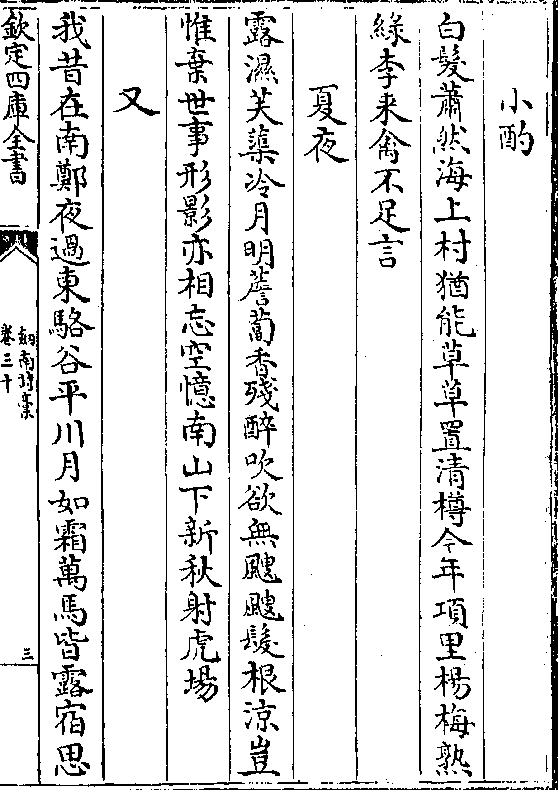 小酌
白髮蕭然海上村猶能草草置清樽今年項里楊梅熟
綠李來禽不足言
夏夜
露濕芙蕖冷月明薝蔔香殘醉吹欲無颼颼髮根涼豈
惟棄世事形影亦相忘空憶南山下新秋射虎場
又
我昔在南鄭夜過東駱谷平川月如霜萬馬皆露宿思
欽定四庫全書
劔南詩稾
卷三十
三